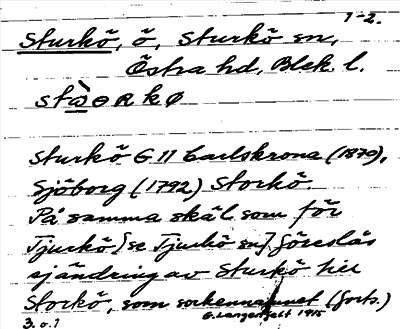 1-2.
Sturkö, ö, Sturkö sn,
Östra hd, Blek. l.
Sturkö G 11 Carlskrona (1870),
Sjöborg (1792) Storkö.
På samma skäl som för
Tjurkö [se Tjurkö sn] föreslås
sjändring av Sturkö till
Storkö, som sockennamnet (forts.)
3. o. 1 G. Langenfelt 1915